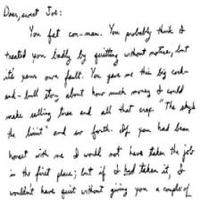 Dear, sweet Joe:
You fat con-man. You probably think I
treated you badly by quitting without notice, but
it's your own fault. You gave me this big cock-
and-bull story about how much money I could
make selling bras and all that crap. "The sky's
the limit" and so forth. If you had been
honest with me I would not have taken the job
in the first place; but if I had taken it, I
wouldn't have quit without giving you a couple of